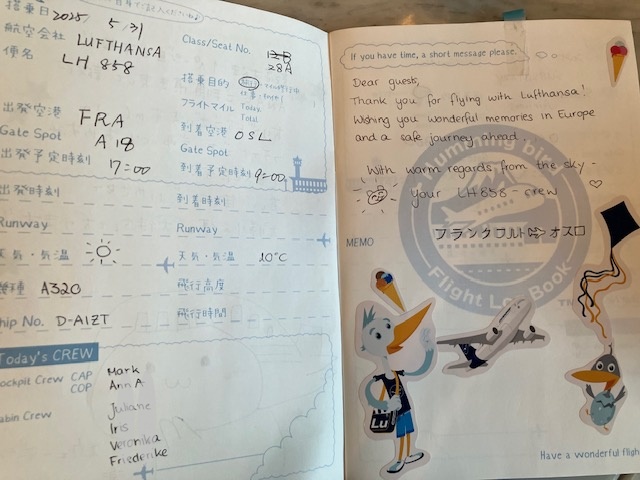 搭乗日 2025 5/31
航空会社 LUFTHANSA
便名 LH 858
出発空港 FRA
Gate Spot A 18
出発予定時刻 17=00
出発時刻
Runway
天気・気温
機種 A320
hip No. D-AIZT
Today's CREW
ockpit Crew CAP Mark
COP Ann A
abin Crew
Juliane
Iris
Veronika
Friederike
Class/Seat No.
28A
搭乗目的
フライトマイル Today.
Total
到着空港 OSL
Gate Spot
到着予定時刻 9=00
到着時刻
Runway
天気・気温 10°C
飛行高度
飛行時間
If you have time, a short message please.
Dear guest,
Thank you for flying with Lufthansa!
Wishing you wonderful memories in Europe
and a safe journey ahead.
With warm regards from the sky -
your LH858-crew
MEMO
フランクフルト ⇨ オスロ
Flight Log Book
Lu
Have a wonderful fligh